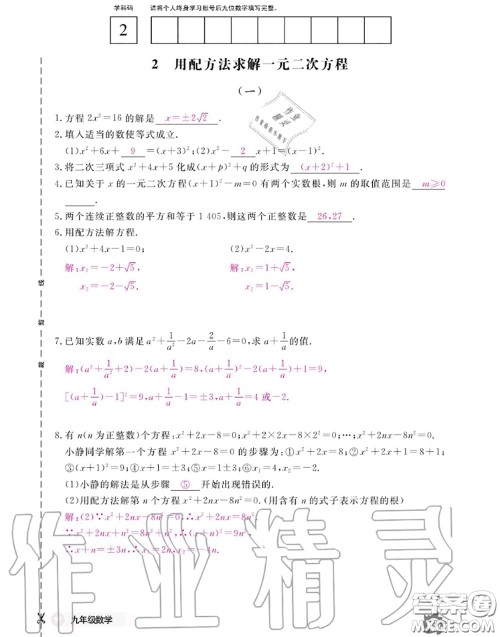 学科码 请将个人终身学习账号后九位数字填写完整.
2
2 用配方法求解一元二次方程
(一)
1.方程2x²=16的解是 x=±2√2 .
2.填入适当的数使等式成立.
(1)x²+6x+ 9 =(x+3)²;(2)x²- 2 x+1=(x-1)².
3.将二次三项式x²+4x+5化成(x+p)²+q的形式为 (x+2)²+1 .
4.已知关于x的一元二次方程(x+1)²-m=0有两个实数根,则m的取值范围是 m≥0
5.两个连续正整数的平方和等于1 405,则这两个正整数是 26,27 .
6.用配方法解方程.
(1)x²+4x-1=0; (2)x²-2x-4=0.
解:x₁=-2+√5, 解:x₁=1+√5,
x₂=-2-√5. x₂=1-√5.
7.已知实数a,b满足a²+1/a²-2a-2/a-6=0,求a+1/a的值.
解:(a²+1/a²+2)-2(a+1/a)=8,(a+1/a)²-2(a+1/a)=8,
[(a+1/a)-1]²=9,a+1/a-1=±3,a+1/a=4或-2.
8.有n(n为正整数)个方程:x²+2x-8=0;x²+2×2x-8×2²=0;…;x²+2nx-8n²=0.
小静同学解第一个方程x²+2x-8=0的步骤为:①x²+2x=8;②x²+2x+1=8+1;
③(x+1)²=9;④x+1=±3;⑤x=1±3;⑥x₁=4,x₂=-2.
(1)小静的解法是从步骤 ⑤ 开始出现错误的.
(2)用配方法解第n个方程x²+2nx-8n²=0.(用含有n的式子表示方程的根)
解:(2)∵x²+2nx-8n²=0,∴x²+2nx=8n²
∴x²+2nx+n²=8n²+n²,∴(x+n)²=9n²,
∴x+n=±3n,∴x₁=2n,x₂=-4n.
作业精灵
九年级数学